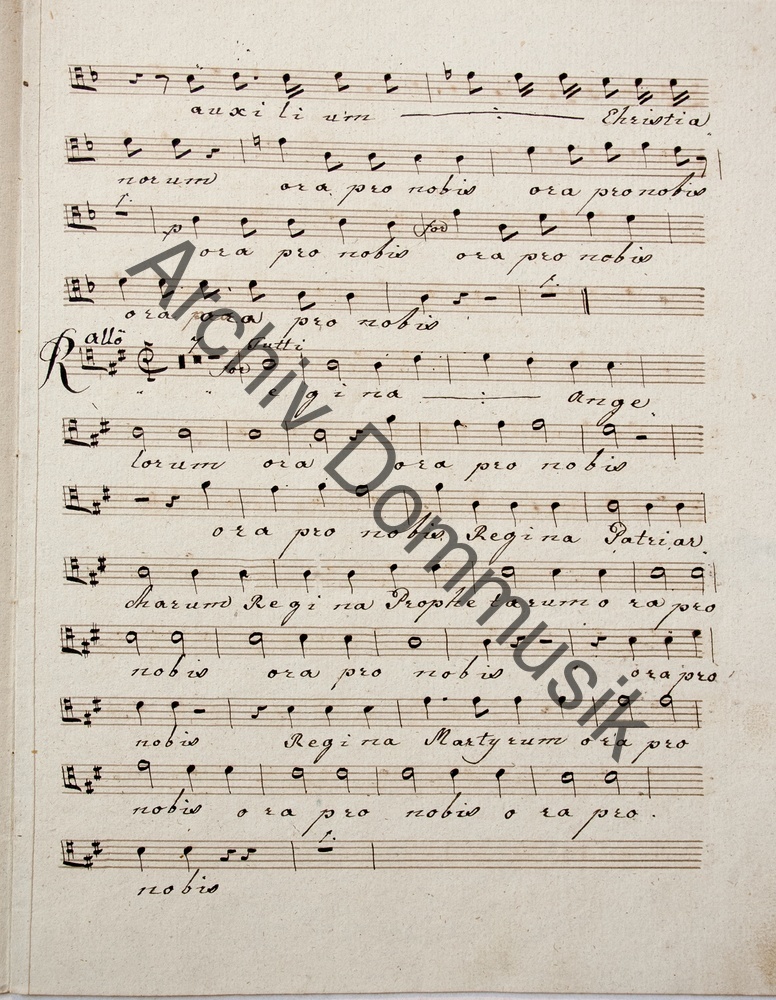 auxilium Christia
norum ora pro nobis ora pro nobis
1.
p ora pro nobis for ora pro nobis
ora ora pro nobis
1.
allo 7 Tutti
for
Regina Ange
lorum ora ora pro nobis
ora pro nobis Regina Patriar
charum Regina Prophetarum ora pro
nobis ora pro nobis ora pro
nobis Regina Martyrum ora pro
nobis ora pro nobis ora pro.
1.
nobis
Archiv Dommusik